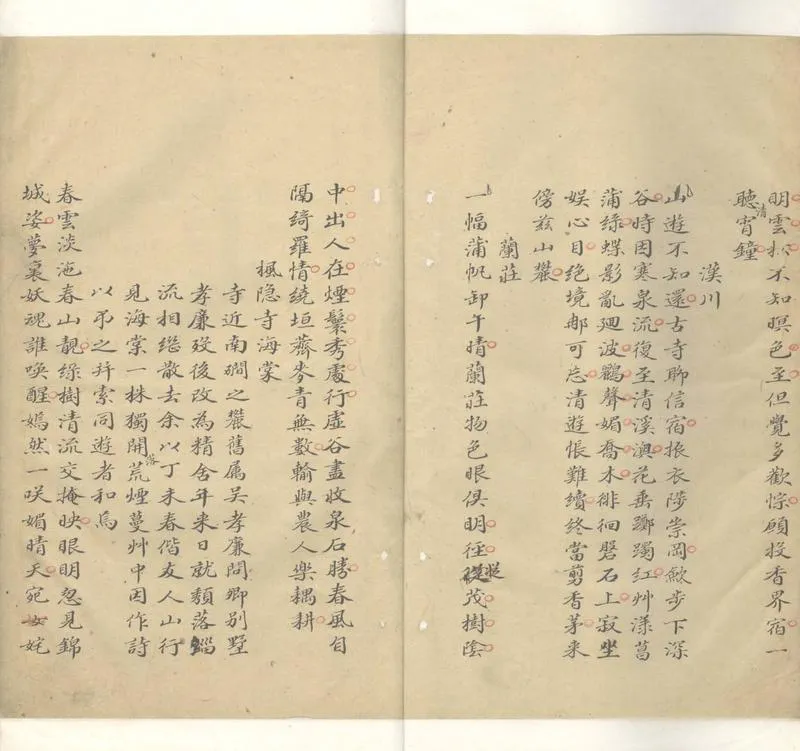 明雲松不知暝色至但覺多歡悰願投香界宿一
聽清宵鐘
漢川
山遊不知還古寺聊信宿振衣陟崇岡歛步下深
谷時因寒泉流復至清溪澳花垂躑躅紅艸漾菖
蒲綠蝶影亂廻波鸝聲媚喬木徘徊磐石上寂坐
娱心目絕境那可忘清遊悵難續終當剪香茅来
傍兹山麓
蘭莊
一幅蒲帆卸午晴蘭莊物色眼俱明徑從茂樹陰
中出人在煙鬟秀處行虛谷盡收泉石勝春風自
隔綺羅情繞垣薺麥青無數輸與農人樂耦耕
楓隐寺海棠
寺近南磵之麓舊属吴孝廉問卿别墅
孝廉歿後改為精舍年来日就頽落緇
流相繼散去余以丁未春偕友人山行
見海棠一株獨開荒煙蔓艸中因作詩
以弔之幷索同遊者和焉
春雲淡沲春山靚綠樹清流交掩映眼明忽見錦
城姿夢裏妖魂誰喚醒嫣然一咲媚晴天宛女姹